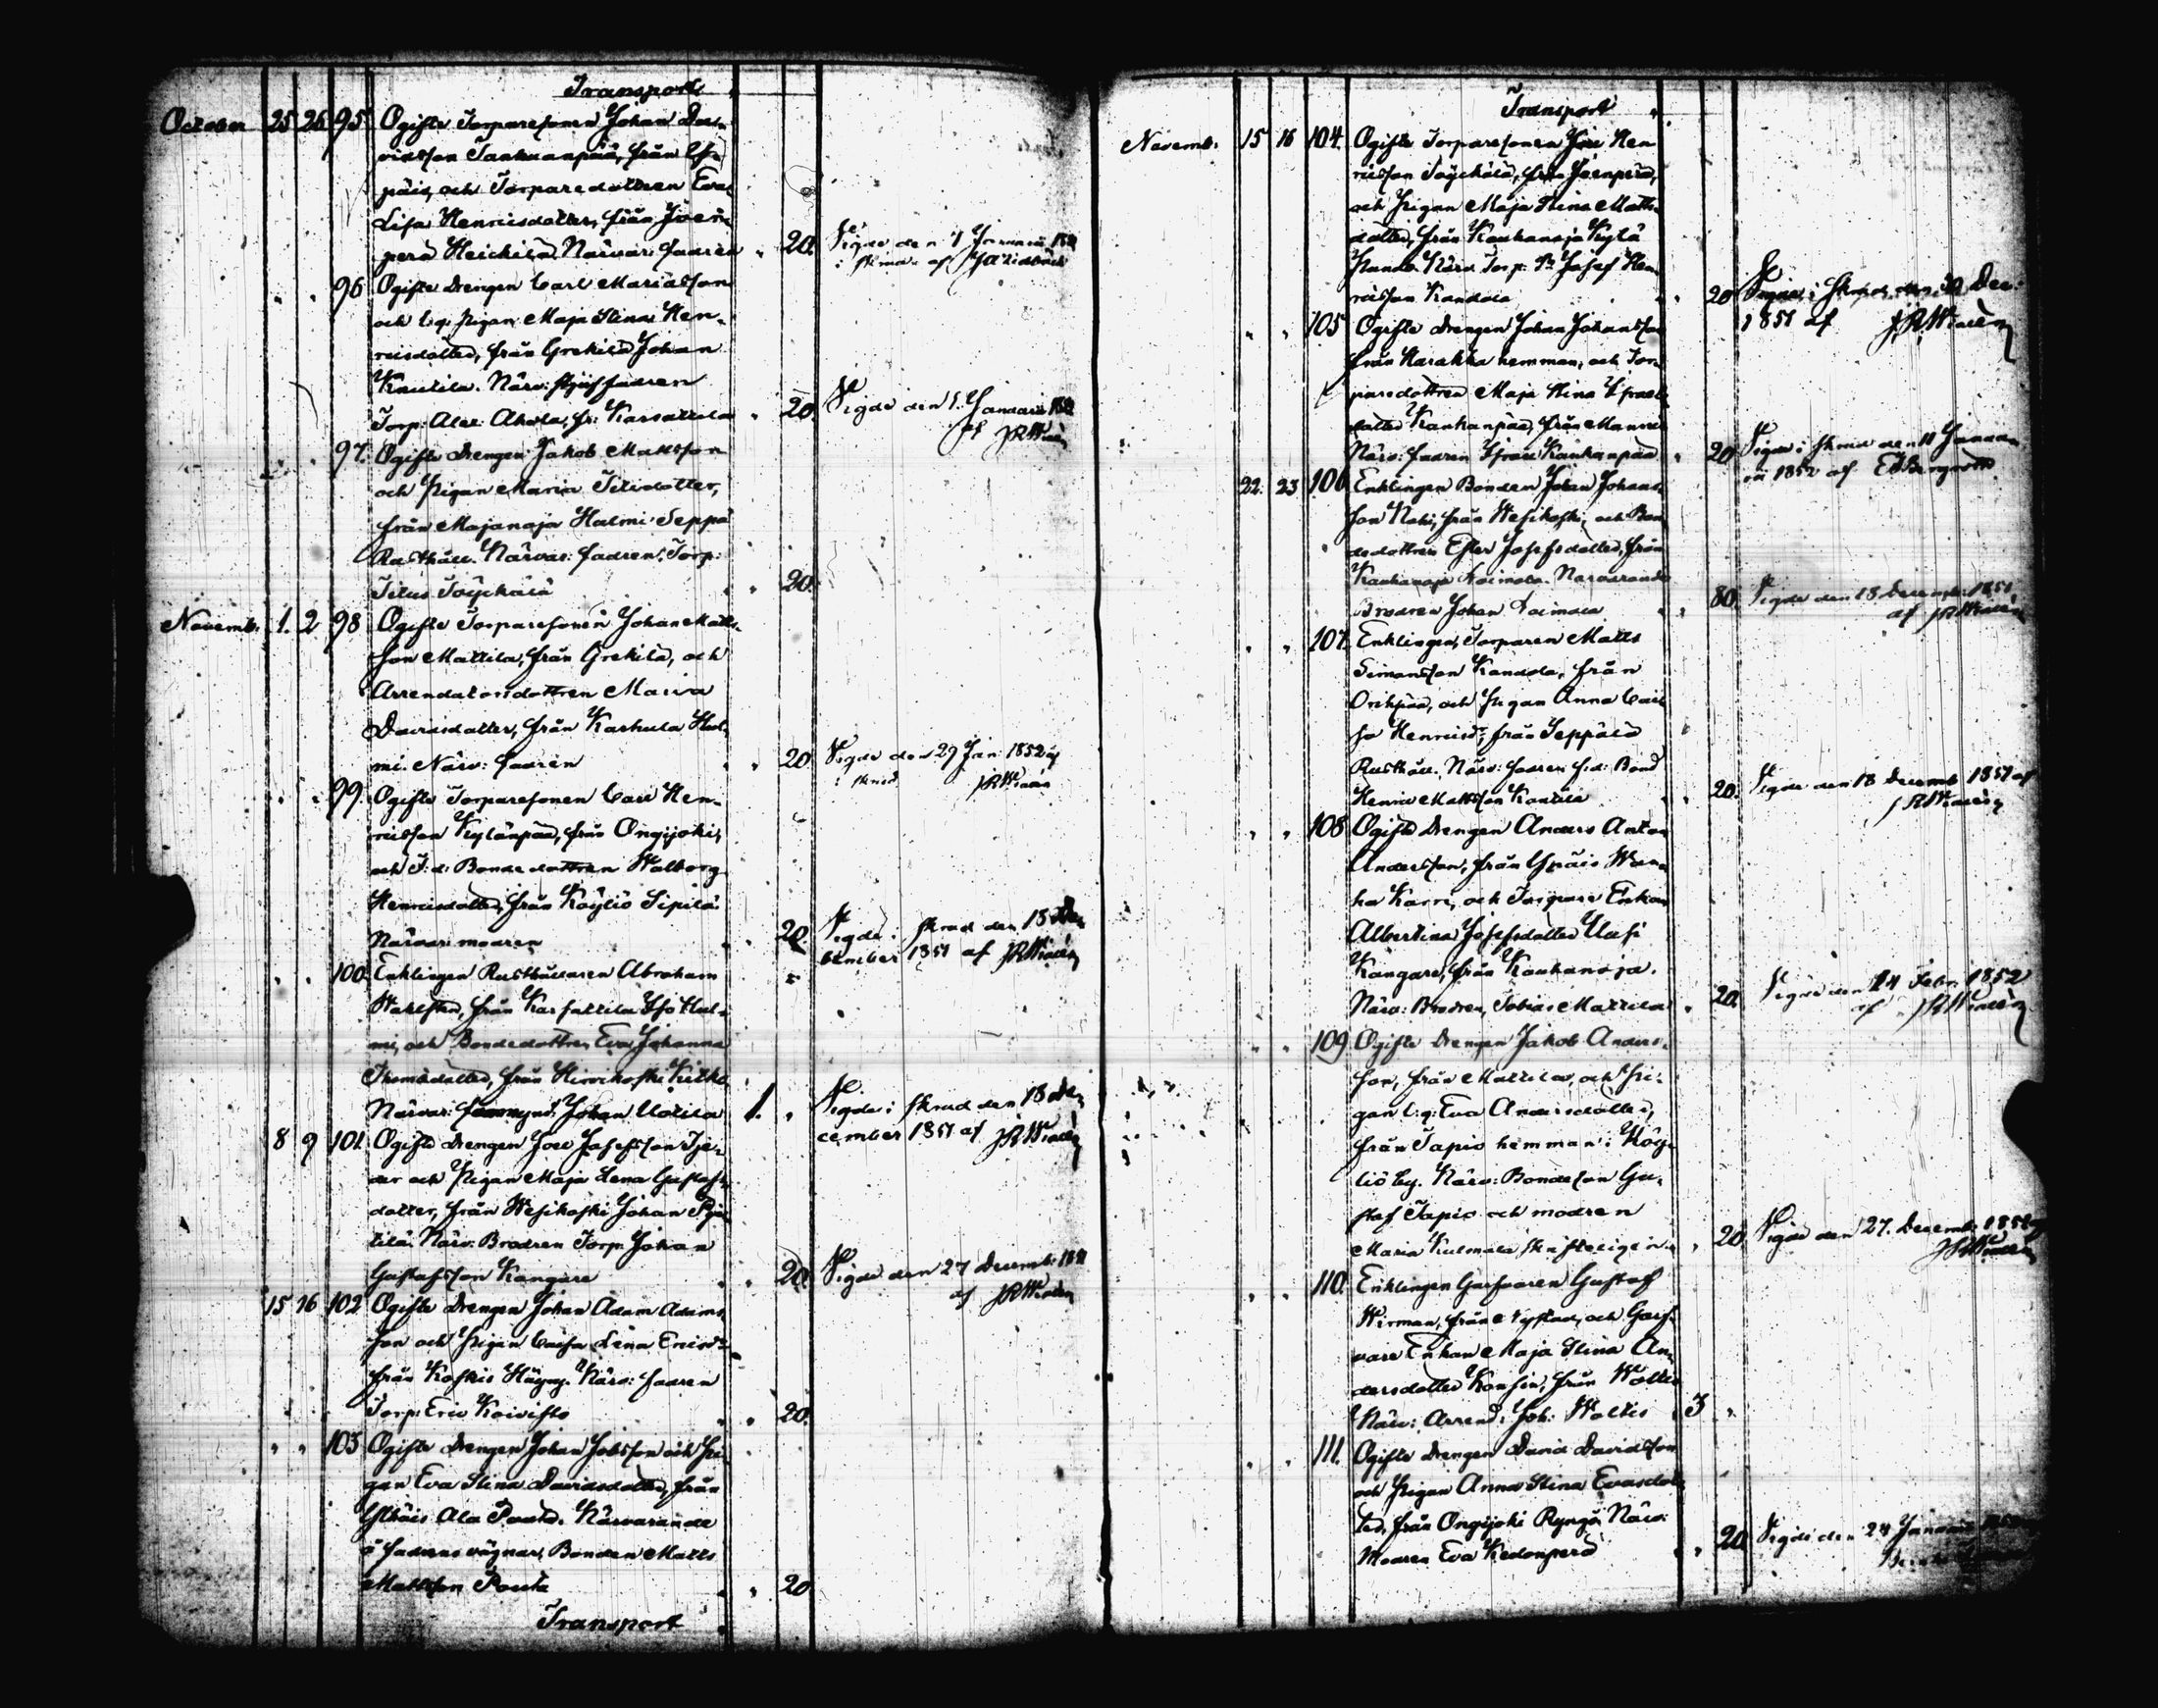 Transport
October 25 26 95 Ogifte Torparesonen Johan Da-
vidsson Tankuanpää, från Yt-
päis, och Torparedottren Eva
Lisa Henricsdotter, från Joen-
perä Heickilä. Närvar: fadren " 20. Vigde den 1 Januarii 1852
i skrud af
" " 96 Ogifte Drengen Carl Mariasson
och l.q. Pigan Maja Stina Hen-
ricsdotter, från Grekilä Johan
Knutila. Närv: styffadren
Torp: Alex: Ahola, fr: Karsattila " 20. Vigde den 1. Januarii 1852
af JRWinén
" " 97. Ogifte Drengen Jakob Mattsson
och Pigan Maria Titusdotter,
från Majanoja Halmi Seppä
Rusthåll. Närvar: fadren, Torp:
Titus Töyckälä " 20.
Novemb. 1. 2 98 Ogifte Torparesonen Johan Matts-
son Mattila, från Grekilä, och
Arrendatorsdottren Maria
Davidsdotter, från Karhula Hal-
mi. Närv: fadren " 20. Vigde den 29 Jan: 1852 af
i skrud JRWinén
" " 99. Ogifte Torparesonen Carl Hen-
ricsson Kylänpää, från Ongijoki,
och F:d: Bondedottren Walborg
Henricsdotter, från Köyliö Sipilä
Närvar: modren " 20. Vigde i skrud den 18 De-
cember 1851 af JRWinén
" " 100. Enklingen Rusthållaren Abraham
Wahlsten, från Karsattila Iso Hal-
mi, och Bondedottren Eva Johanna
Thomasdotter, från Hirvikoski Kitko
Närvar: förmynd: Johan Uotila 1. " Vigde i skrud den 18 De-
cember 1851 af JRWinén
8 9 101. Ogifte Drengen Joel Josefsson Tje-
der och Pigan Maja Lena Gustafs-
dotter, från Wesikoski Johan Pyö-
tilä. Närv: Brodren Torp: Johan
Gustafsson Kangare " 20. Vigde den 27 Decemb: 1851
af JRWinén
15 16 102 Ogifte Drengen Johan Adam Adams-
son och Pigan Caisa Lena Ericsdr
från Koskis Häyny. Närv: fadren
Torp: Eric Koivisto " 20.
" " 103 Ogifte Drengen Johan Jobsson och Pi-
gan Eva Stina Davidsdotter, från
Yttäis Ala Pouta. Närvarande
å fadrens vägnar, Bonden Matts
Mattsson Pouta " 20
Transport
Transport
Novemb. 15 16 104. Ogifte Torparesonen Joel Hen-
ricsson Töyckälä, från Joenperä,
och Pigan Maja Stina Matts-
dotter, från Kauhanoja Kylä
Närv. Torp: Sn Josef Hen-
ricsson Kandola " 20 Vigde i skrud den 30 Dec:
1851 af JRWinén
" " 105 Ogifte Drengen Johan Johansson
från Harakka hemman, och Tor-
paredottren Maja Stina Israels-
dotter Kauhanpää, från Mannis
Närv: fadren Israel Kauhanpää " 20 Vigde i skrud den 11 Janua-
rii 1852 af EJBergroth
22. 23 106 Enklingen Bonden Johan Johans-
son Nohi, från Wesikoski, och Bon-
dedottren Ester Josefsdotter, från
Kauhanoja Heimola. Närvarande
Brodren Johan Heimola " 80. Vigde den 18 December 1851
af JRWinén
" " 107. Enklingen, Torparen Matts
Simonsson Kandola, från
Orihpää, och Pigan Anna Cai-
sa Henricsdr, från Seppälä
Rusthåll. Närv: fadren f.d: Bond
Henric Mattsson Kantola " 20. Vigde den 18 Decemb: 1851 af
JRWinén
" " 108 Ogifte Drengen Anders Anton
Andersson, från Ypäis Wan-
ha Karri, och Torpare Enkan
Albertina Josefsdotter Uusi
Kangare, från Kauhanoja.
Närv: Brodren, Tobias Mattila " 20. Vigde den 24 Febr: 1852
af JRWinén
" " 109 Ogifte Drengen Jakob Anders-
son, från Mattila, och Pi-
gan l:q: Eva Andersdotter,
från Tapio hemman i Köy-
liö by. Närv: Bondeson Gu-
staf Tapio och modren
Maria Kulmala skrifteligen " 20. Vigde den 27. Decemb: 1851 af
JRWinén
" " 110. Enklingen Garfvaren Gustaf
Wirman, från Nystad, och Garf-
vare Enkan Maja Stina An-
dersdotter Konsin, från Woltis
Närv: Arrend: Joh: Woltis 3 "
" " 111. Ogifte Drengen David Davidsson
och Pigan Anna Stina Evasdot-
ter, från Ongijoki Ryngö. Närv:
Modren Eva Kedonperä " 20. Vigde den 24 Januarii